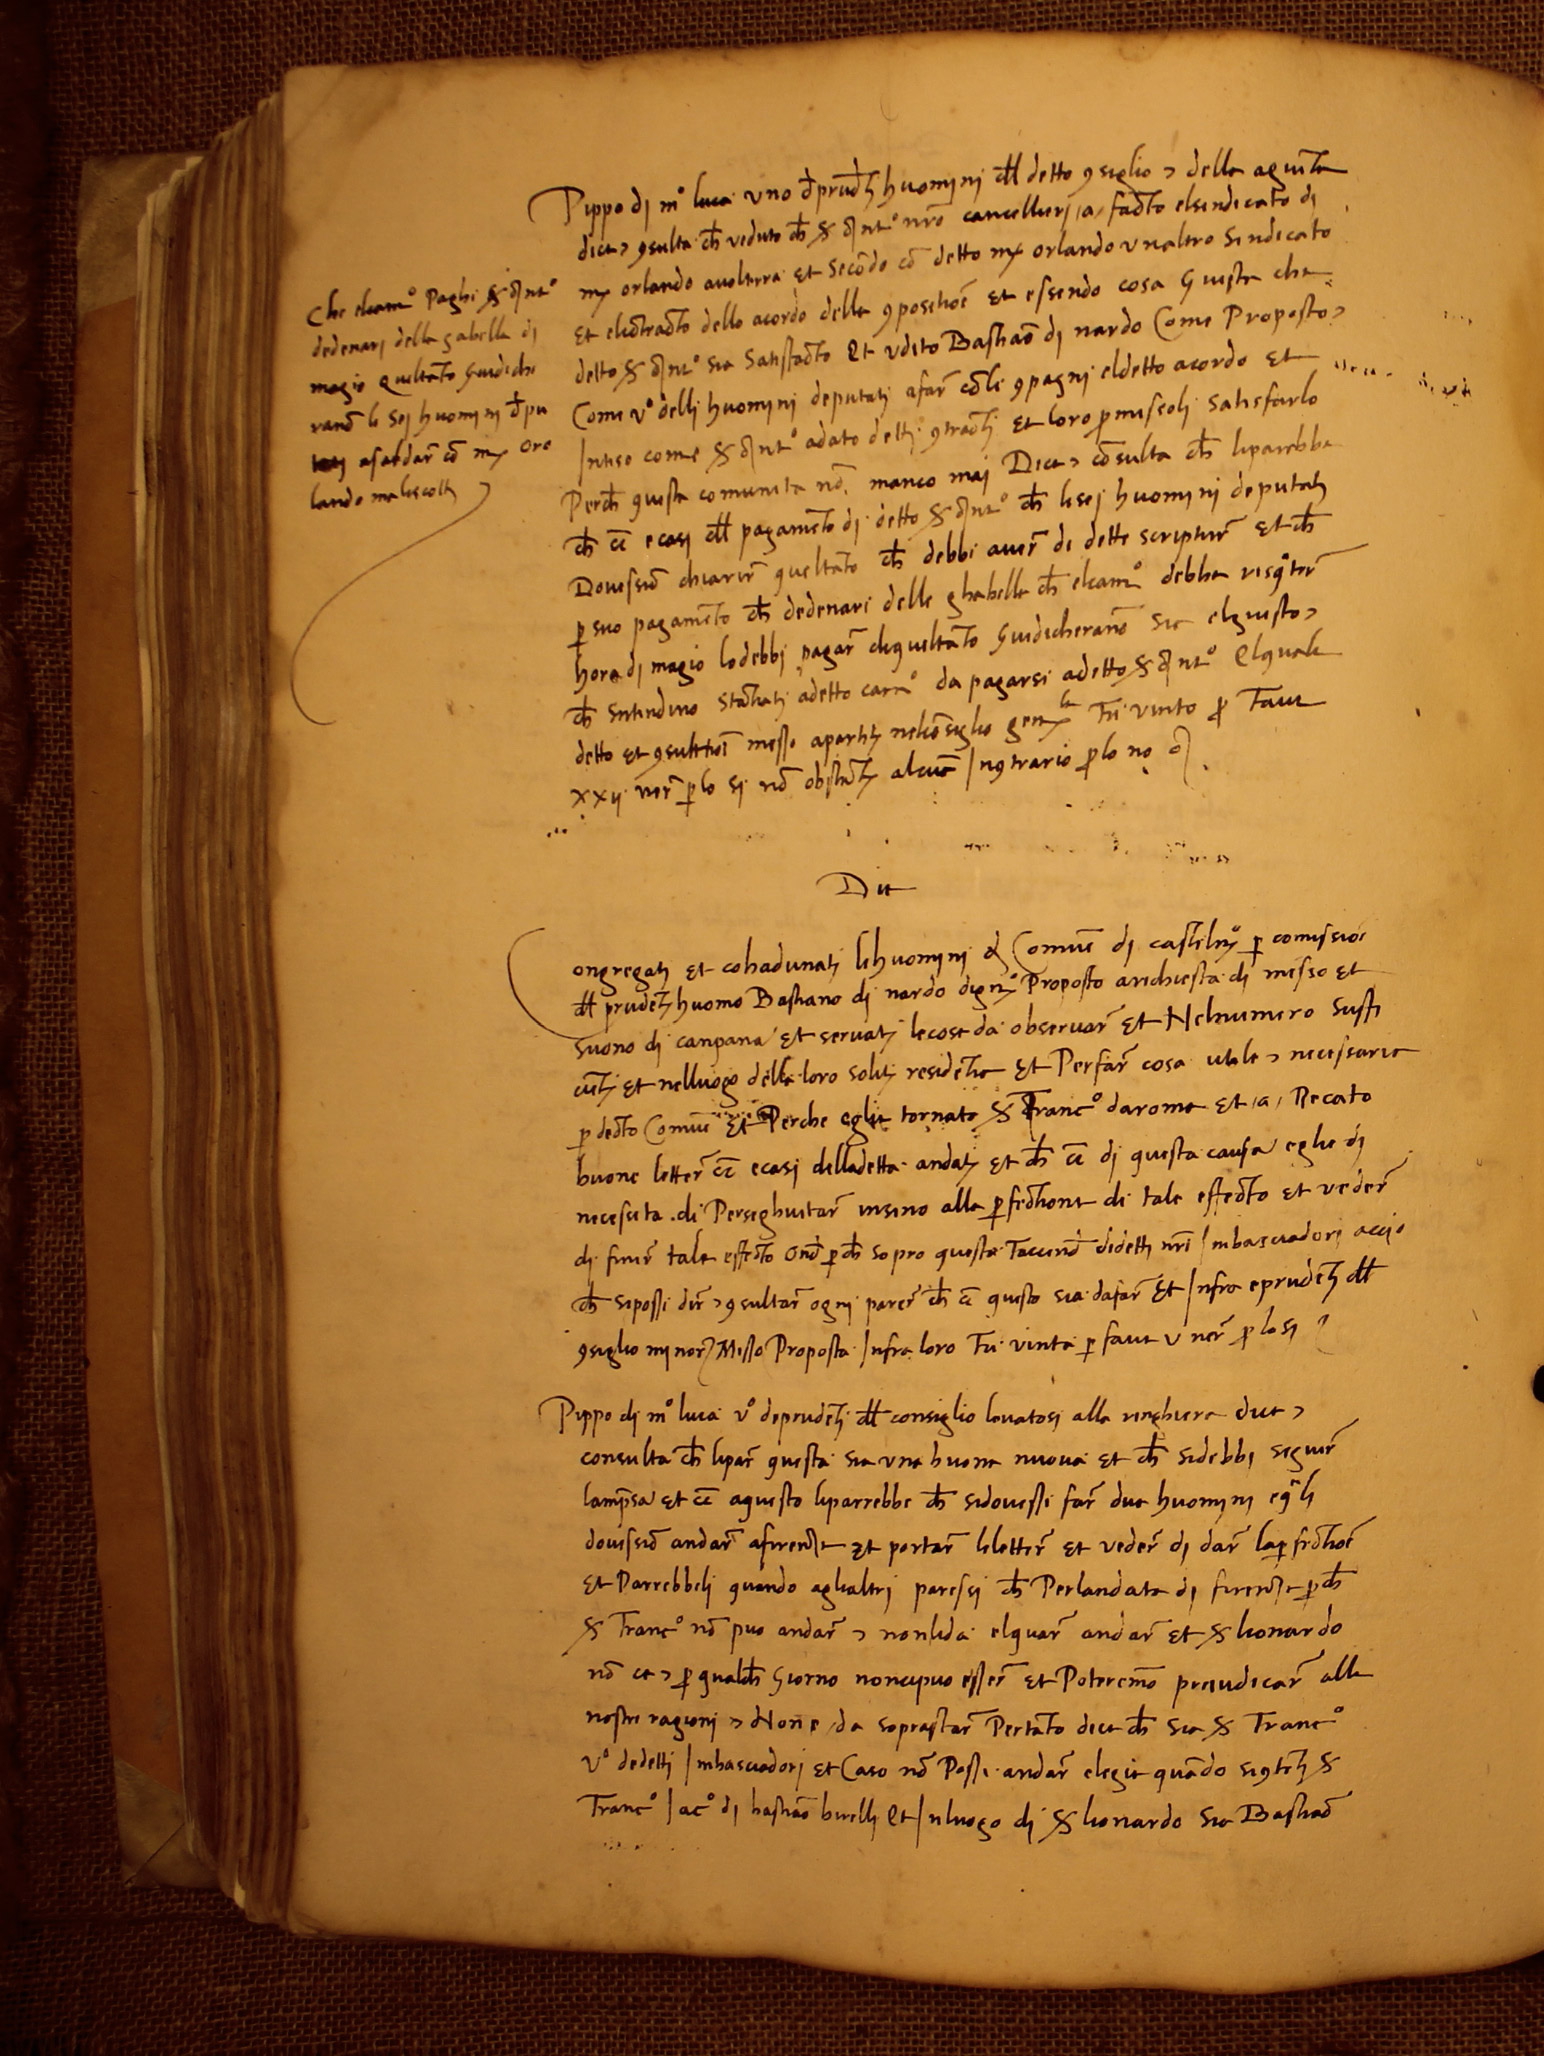 Pippo di m° luca uno d prudēti huomini dll detto 9siglio 7 della agiūta
dice 7 9sulta ch veduto ch S Ant° nr̄o cancellieri /a/ facto elsindicato di
mS orlando avolterra et secōdo cō detto mS orlando unaltro sindicato
et elcōtracto dello acordo della 9positiōe et essendo cosa giusta che
detto S Ant° sia satisfacto Et udito Bastiāo di nardo Come Proposto 7
Come v° delli huomini deputati afar̄ cōli 9pagni eldetto acordo et
Inteso come S Ant° adato detti 9tracti et loro
Perch questa comunita nō manco mai Dice 7 cōsulta ch liparebbe
ch cc̄ ecasi dll pagamēto di detto S Ant° ch lisei huomini deputati
Dovessīo chiarir̄ queltāto ch debbi aver̄ di dette scriptur̄ Et ch
p suo pagamēto ch dedenari delle ghabelle ch elcam° debba
hora di magio lodebbi pagar̄ diqueltāto Giudicherāno sie elgiusto 7
ch sintendino stātiati adetto cam° da pagarsi adetto S Ant° Elquale
detto et 9sultatiōe messo apartiti nelcōsiglio gen̄le Fu vinto p Fave
xxij ner̄ plo si nō obstāti alcūe In9trario plo no
Che elcam° Paghi S Ant°
dedenari della gabella di
magio queltāto Giudiche
rano le sei huomini dpu
tati afardar̄ cō mS Or
lando malescotti
Die
Congregati et cohadunati lihuomini d Comūe di castelnv° p comissiōe
dll prudēti huomo Bastiano di nardo dignm° Proposto arichiesta di messo et
suono di canpana et servati lecose da observar̄ et Nelnumero suffi
ciēti et nelluogo della loro soliti residētia et Perfar̄ cosa utile 7 necessaria
p decto Comūe et Perche eglie tornato S Franc° daroma et /a/ Recato
buone letter̄ cc̄ ecasi delladetta andati et ch cc̄ di questa causa eglie di
necessita di Perseghuitar̄ insino alla pfectione di tale effecto et veder̄
di finir̄ tale effecto ond pch sopro questa Faccend didetti nr̄i Inbasciadori accio
ch sipossi dir̄ 7 9sultar̄ ogni parer̄ ch cc̄ questo sia dafar̄ Et Infra eprudēti dll
9siglio minor̄ Messo Proposta Infra loro Fu vinta p fave v ner̄ plo si
Pippo di m° luca v° deprudēti dll consiglio levatosi alla ringhiera dice 7
consulta ch lipar̄ questa sia una buona nuova et ch sidebbi seguir̄
lamp̄sa et cc̄ aquesto liparrebbe ch sidovessi far̄ due huomini eq̄li
dovessīo andar̄ afirenze et portar̄ leletter̄ et veder̄ di dar̄ lapfectiōe
et Parrebbeli quando aglialtri paressi ch Perlandata di firenze pch
S Franc° nō puo andar̄ 7 nonlida elquar̄ andar̄ et S lionardo
nō ce 7 p qualch Giorno noncipuo esser̄ et Poterēmo preiudicar̄ alle
nostre ragioni 7 None da soprastar̄ Pertāto dice ch sia S Franc°
v° dedetti Inbasciadori et Caso nō Possi andar̄ elegie quādo si9tēti S
Franc° Iac° di bastiāo burelli Et Inluogo di S lionardo sia Bastiāo